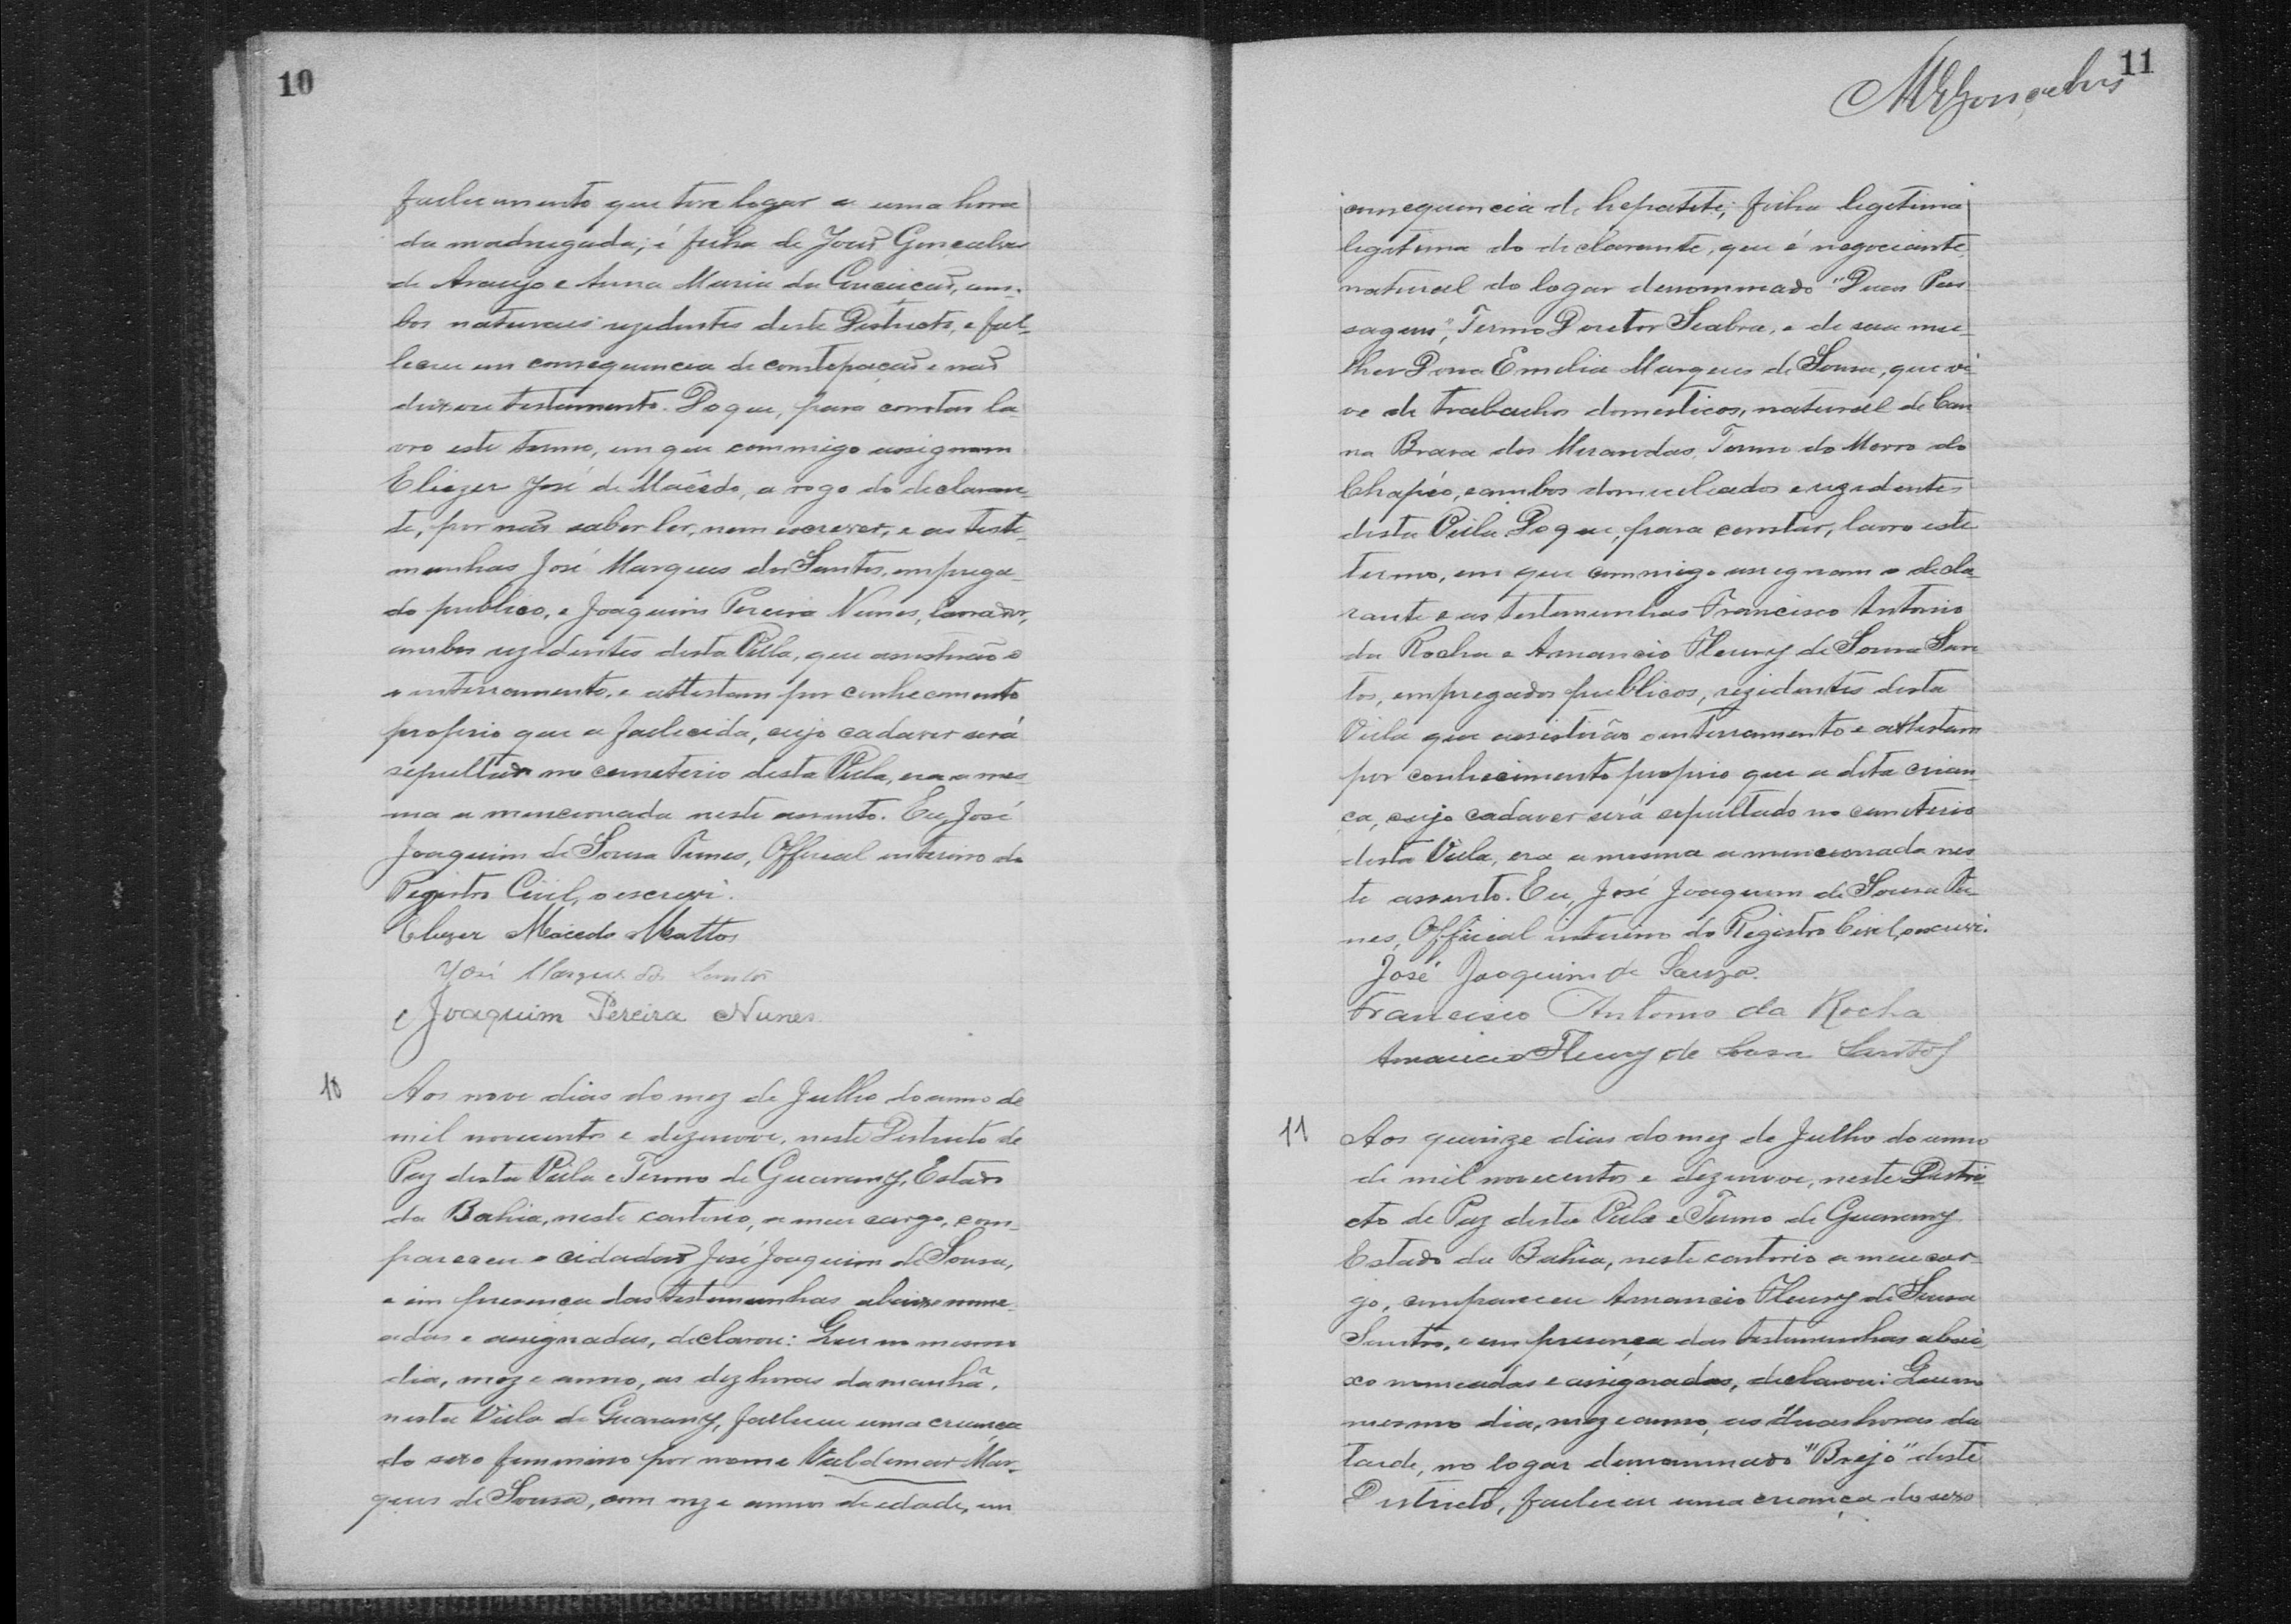 10
fallecimento que teve logar a uma hora
da madrugada; é filha de João Gonçalves
de Araujo e Anna Maria da Conceição, am-
bos naturaes rezidentes deste Districto, e fal-
leceu em consequencia de constipação e não
deixou testamento. Do que, para constar la-
vro este termo, em que commigo assignam
Eliezer José de Macêdo, a rogo do declaran-
te, por não saber ler, nem escrever, e as teste-
munhas José Marques dos Santos, emprega-
do publico, e Joaquim Pereira Nunes, lavrador,
ambos rezidentes desta Villa, que assistirão o
o enterramento, e attestam por conhecimento
proprio que a fallecida, cujo cadaver será
sepultado no cemeterio desta Villa, era a mes-
ma a mencionada neste assento. Eu, José
Joaquim de Sousa Tunes, Official interino do
Registro Civil, o escrevi.
Eliezer Macedo Mattos
José Marques dos Santos
Joaquim Pereira Nunes
10 Aos nove dias do mez de Julho do anno de
mil novecentos e dezenove, neste Districto de
Paz desta Villa e Termo de Guarany, Estado
da Bahia, neste cartorio, a meu cargo, com-
pareceu o cidadão José Joaquim de Sousa,
e em presença das testemunhas abaixo nome-
adas e assignadas, declarou: Que no mesmo
dia, mez e anno, as dez horas da manhã,
nesta Villa de Guarany, falleceu uma creança
do sexo feminino por nome Valdemar Mar-
ques de Sousa, com onze annos de edade, em
MEGonçalves
11
consequencia de hepatite; filha legitima
legitima do declarante, que é negociante,
natural do logar denominado "Duas Pas-
sagens", Termo Doutor Seabra, e de sua mu-
lher Dona Emilia Marques de Sousa, que vi-
ve de trabalhos domesticos, natural de Can
na Brava dos Mirandas, Termo do Morro do
Chapéo, e ambos domiciliados e rezidentes
desta Villa. Do que, para constar, lavro este
termo, em que commigo assignam o decla-
rante e as testemunhas Francisco Antonio
da Rocha e Amancio Fleury de Sousa San
tos, empregados publicos, rezidentes desta
Villa que assistirão o enterramento e attestam
por conhecimento proprio que a dita crian-
ça, cujo cadaver será sepultado no cemeterio
desta Villa, era a mesma a mencionada nes
te assento. Eu, José Joaquim de Sousa Tu-
nes, Official interino do Registro Civil, o escrevi.
José Joaquim de Souza.
Francisco Antonio da Rocha
Amancio Fleury de Sousa Santos
11 Aos quinze dias do mez de Julho do anno
de mil novecentos e dezenove, neste Distri-
cto de Paz desta Villa e Termo de Guarany
Estado da Bahia, neste cartorio a meu car-
go, compareceu Amancio Fleury de Sousa
Santos, e em presença das testemunhas abai
xo nomeadas e assignadas, declarou: Que no
mesmo dia, mez e anno, as duas horas da
tarde, no logar denominado "Brejo" deste
Districto, falleceu uma criança do sexo